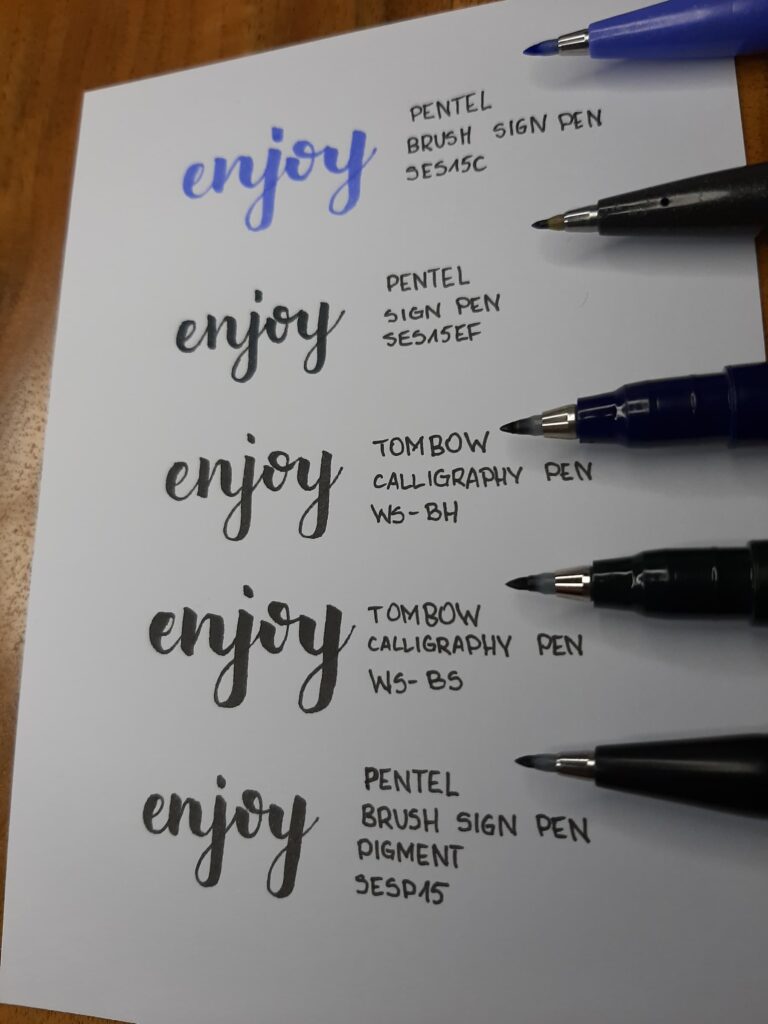 enjoy
PENTEL
BRUSH SIGN PEN
SES15C
enjoy
PENTEL
SIGN PEN
SES15EF
enjoy
TOMBOW
CALLIGRAPHY PEN
WS-BH
enjoy
TOMBOW
CALLIGRAPHY PEN
WS-BS
enjoy
PENTEL
BRUSH SIGN PEN
PIGMENT
SESP15